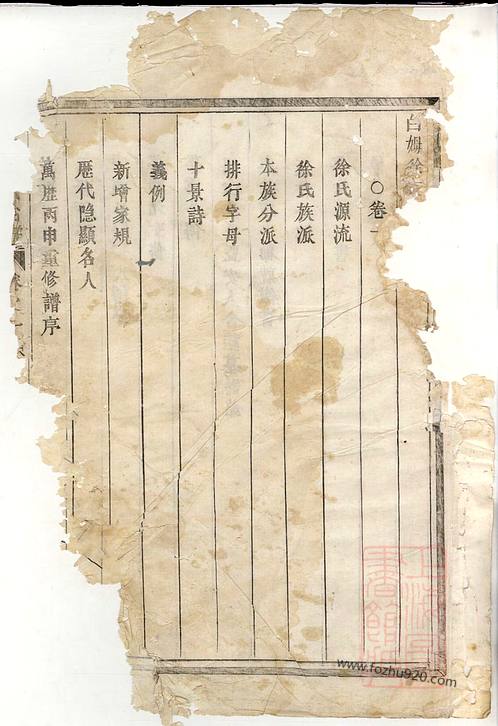 白姆徐
○卷一
徐氏源流
徐氏族派
本族分派
排行字母
十景詩
義例
新增家規
歷代隐顯名人
萬歷丙申重修譜序
www.fozhu920.com